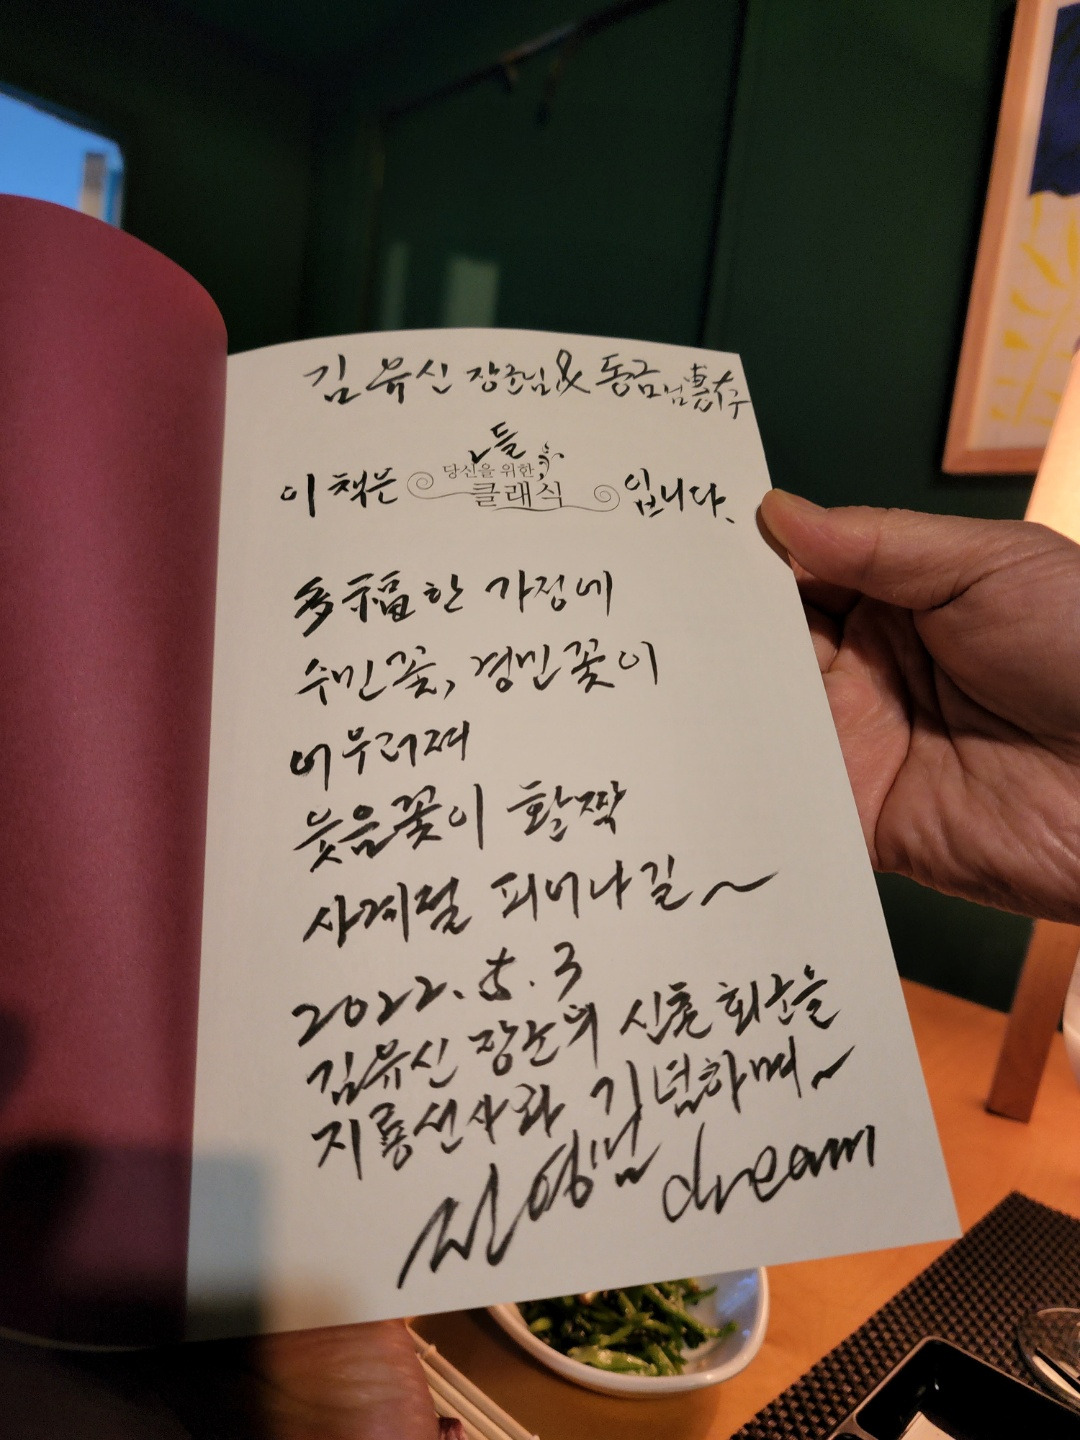 김유신 장군님 & 동금님 惠存
들
당신을 위한
이 책은 클래식 입니다.
多福한 가정에
수민꽃, 경민꽃이
어우러져
웃음꽃이 활짝
사계절 피어나길~
2022. 5. 3
김유신 장군의 신촌 회군을
지룡선사와 기념하며~
dream